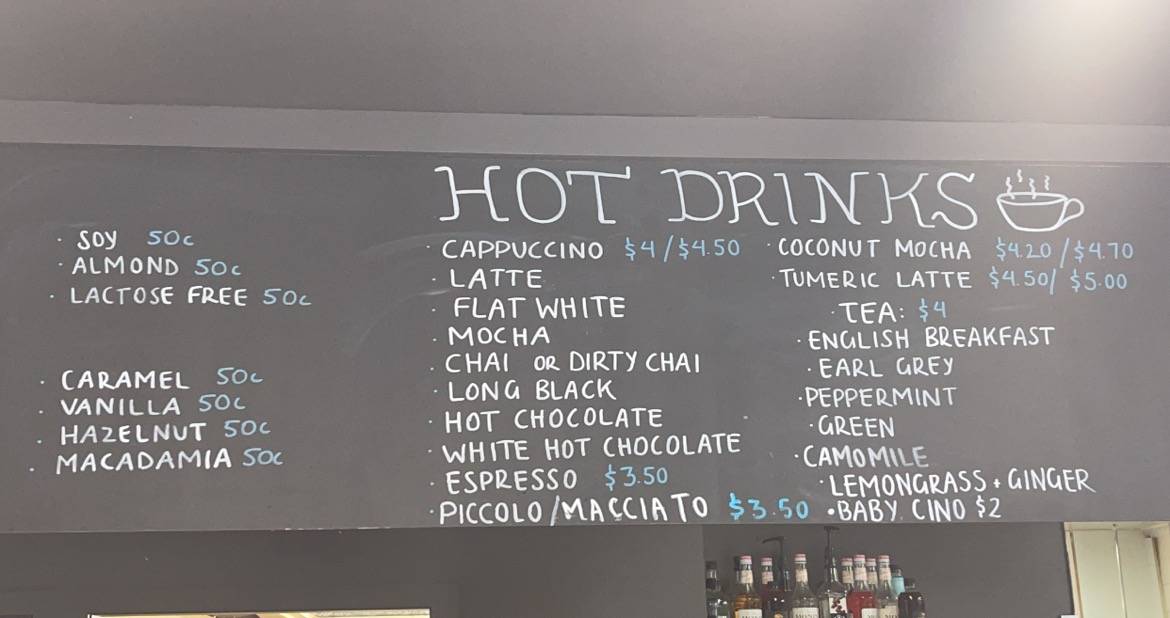 HOT DRINKS
· SOY 50c
· ALMOND 50c
· LACTOSE FREE 50c
· CARAMEL 50c
· VANILLA 50c
· HAZELNUT 50c
· MACADAMIA 50c
· CAPPUCCINO $4/$4.50
· LATTE
· FLAT WHITE
· MOCHA
· CHAI OR DIRTY CHAI
· LONG BLACK
· HOT CHOCOLATE
· WHITE HOT CHOCOLATE
· ESPRESSO $3.50
· PICCOLO/MACCIATO $3.50
· COCONUT MOCHA $4.20/$4.70
· TUMERIC LATTE $4.50/$5.00
· TEA: $4
· ENGLISH BREAKFAST
· EARL GREY
· PEPPERMINT
· GREEN
· CAMOMILE
· LEMONGRASS + GINGER
• BABY CINO $2